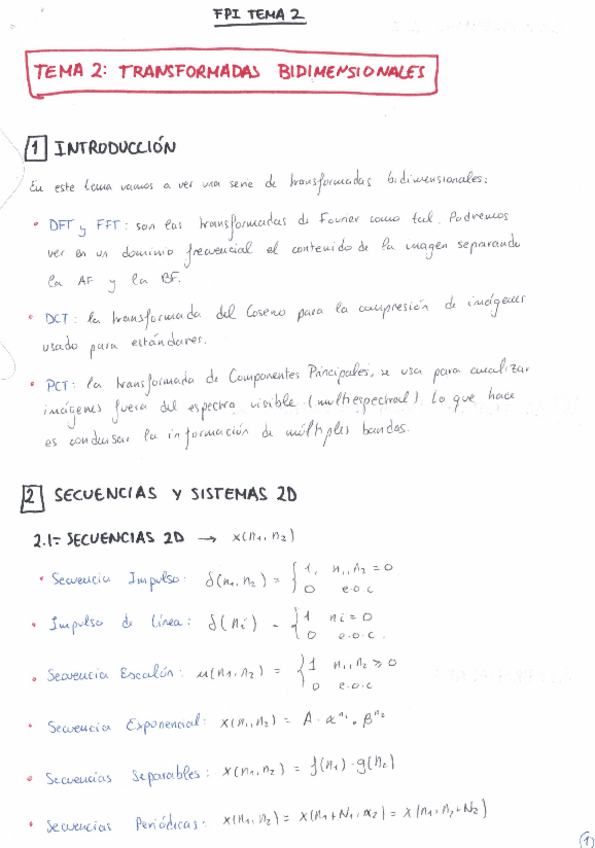 FPI TEMA 2
TEMA 2: TRANSFORMADAS BIDIMENSIONALES
1 INTRODUCCIÓN
En este tema vamos a ver una serie de transformadas bidimensionales:
• DFT y FFT: son las transformadas de Fourier como tal. Podremos
ver en un dominio frecuencial el contenido de la imagen separando
la AF y la BF.
• DCT: la transformada del Coseno para la compresión de imágenes
usado para estándares.
• PCT: la transformada de Componentes Principales, se usa para analizar
imágenes fuera del espectro visible (multiespectral). Lo que hace
es condensar la información de múltiples bandas.
2 SECUENCIAS Y SISTEMAS 2D
2.1- SECUENCIAS 2D → x(n1, n2)
• Secuencia Impulso: δ(n1, n2) = { 1, n1, n2 = 0
0 e.o.c
• Impulso de Línea: δ(ni) = { 1 ni = 0
0 e.o.c.
• Secuencia Escalón: u(n1, n2) = { 1 n1, n2 ≥ 0
0 e.o.c
• Secuencia Exponencial: x(n1, n2) = A · α^n1 · β^n2
• Secuencias Separables: x(n1, n2) = f(n1) · g(n2)
• Secuencias Periódicas: x(n1, n2) = x(n1+N1, n2) = x(n1, n2+N2)
1